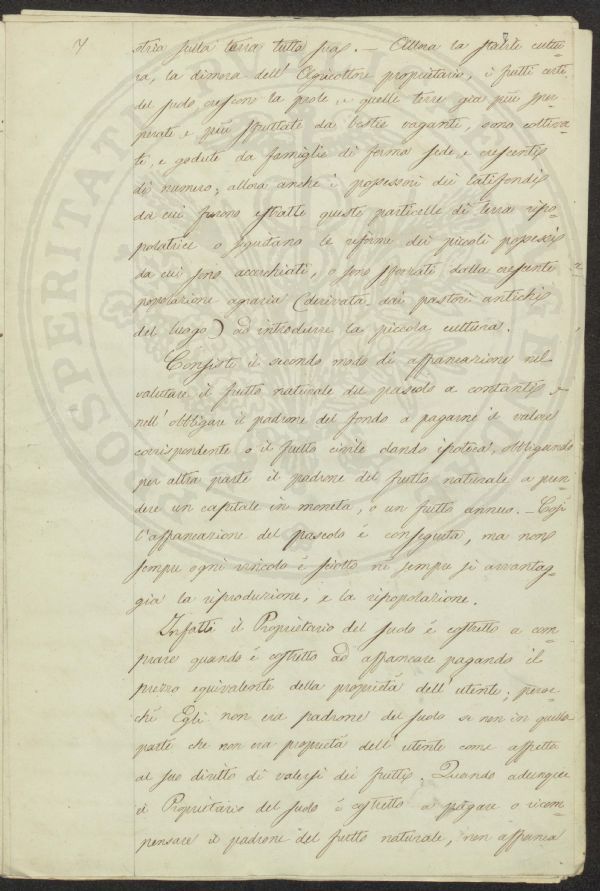 7
stria sulla terra tutta sua. — Allora la stabile cultu-
ra, la dimora dell'Agricoltore proprietario, i frutti certi
del suolo, crescono la prole, e quelle terre già più sper-
perate e più sfruttate da bestie vaganti, sono coltiva-
te, e godute da famiglie di ferma sede, e crescenti
di numero; allora anche i possessori dei latifondi
da cui furono estratte queste particelle di terra ripo-
polatrice o seguitano le riforme dei piccoli possessi
da cui sono accerchiati, o sono sforzati dalla crescente
popolazione agraria (derivata dai pastori antichi
del luogo) ad introdurre la piccola cultura.
Consiste il secondo modo di affrancazione nel
valutare il frutto naturale del pascolo a contanti e
nell'obbligare il padrone del fondo a pagarne il valore
corrispondente o il frutto civile dando ipoteca, obbligando
per altra parte il padrone del frutto naturale a pren-
dere un capitale in moneta, o un frutto annuo. — Così
l'affrancazione del pascolo è conseguita, ma non
sempre ogni vincolo è sciolto nè sempre si avvantag-
gia la riproduzione, e la ripopolazione.
Infatti il Proprietario del suolo è costretto a com-
prare quando è costretto ad affrancare pagando il
prezzo equivalente della proprietà dell'utente; peroc-
chè Egli non era padrone del suolo se non in quella
parte che non era proprietà dell'utente come aspetta
al suo diritto di valersi dei frutti. Quando adunque
il Proprietario del suolo è costretto a pagare o ricom-
pensare il padrone del frutto naturale, non affranca
PROSPERITATI PUBLICAE